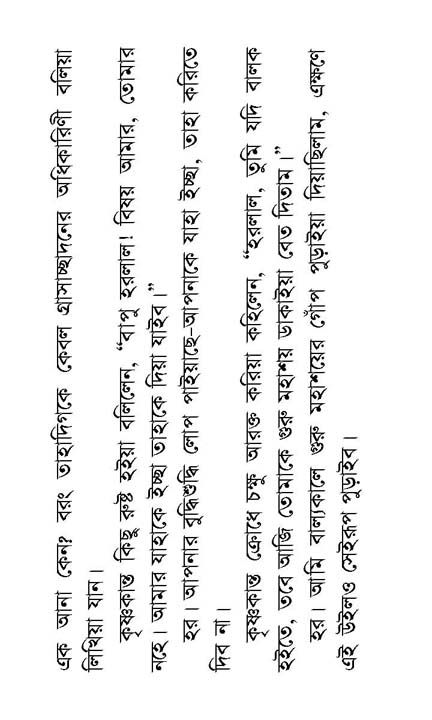 এক আনা কেন? বরং তাহাদিগকে কেবল গ্রাসাচ্ছাদনের অধিকারিণী বলিয়া
লিখিয়া যান।
কৃষ্ণকান্ত কিছু রুষ্ট হইয়া বলিলেন, “বাপু হরলাল! বিষয় আমার, তোমার
নহে। আমার যাহাকে ইচ্ছা তাহাকে দিয়া যাইব।”
হর। আপনার বুদ্ধিশুদ্ধি লোপ পাইয়াছে-আপনাকে যাহা ইচ্ছা, তাহা করিতে
দিব না।
কৃষ্ণকান্ত ক্রোধে চক্ষু আরক্ত করিয়া কহিলেন, “হরলাল, তুমি যদি বালক
হইতে, তবে আজি তোমাকে গুরু মহাশয় ডাকাইয়া বেত দিতাম।”
হর। আমি বাল্যকালে গুরু মহাশয়ের গোঁপ পুড়াইয়া দিয়াছিলাম, এক্ষণে
এই উইলও সেইরূপ পুড়াইব।